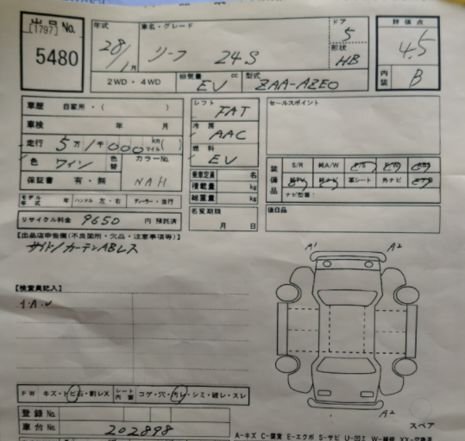 出品No.
[1797]
5480
年式 28/1月
車名・グレード リーフ 24S
ドア 5
形状 HB
評価点 4.5
内装 B
2WD・4WD 総排気量 EV cc 型式 ZAA-AZE0
車歴 自家用・( )
車検 年 月
走行 5万1千000 km マイル
色 ワイン 色替 カラーNo. NAH
保証書 有・無
モデル年式 年 ハンドル 左・右 ディーラー・並行
リサイクル料金 9650 円 預託済
シフト FAT
冷房 AAC
燃料 EV
乗車定員 名
積載量 kg
総重量 kg
名変期限 月 日
セールスポイント
装備品 S/R 純A/W
革シート 外ナビ
ナビ型番:
後日品
[出品店申告欄(不良箇所・欠品・注意事項等)]
サイド/カーテンABレス
[検査員記入]
A1 A2
A2
FW キズ・トビ石・割レX シート内張 コゲ・穴・切レ・シミ・破レ・スレ
登録No.
車台No. 202898
スペア
A-キズ C-腐食 E-エクボ S-サビ U-凹ミ